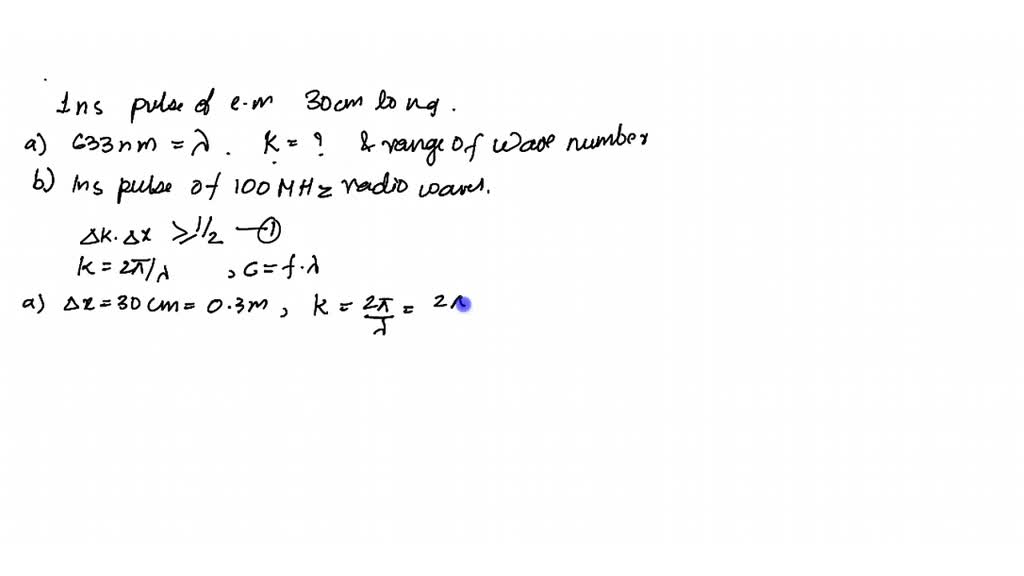 1ns pulse of e-m 30cm long.
a) 633nm = λ. K = ? & range of wave number
b) 1ns pulse of 100 MHz radio waves.
Δk.Δx ≥ 1/2 —①
k = 2π/λ , c = f.λ
a) Δx = 30 cm = 0.3m, k = 2π/λ = 2π